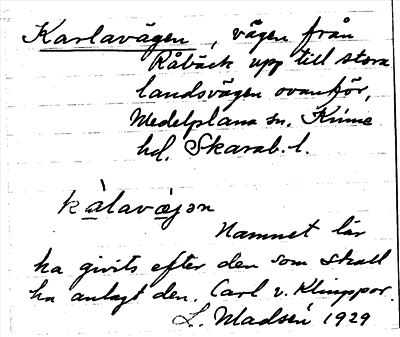 Karlavägen, vägen från
Råbäck upp till stora
landsvägen ovanför,
Medelplana sn. Kinne
hd. Skarab. l.
kàlavæjən
Namnet lär
ha givits efter den som skall
ha anlagt den, Carl v. Klinppor.
L. Madsén 1929